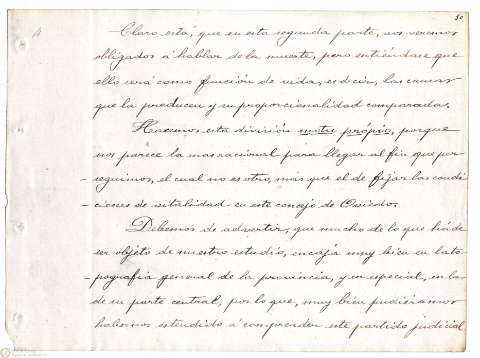 50
Claro está, que en esta segunda parte, nos veremos
obligados á hablar de la muerte, pero entiéndase que
ello será como función de vida, es decir, las causas
que la producen y su proporcionalidad comparada.
Hacemos esta división motu própio, porque
nos parece la mas racional para llegar al fin que per-
-seguimos, el cual no es otro, más que el de fijar las condi-
-ciones de vitalidad en este concejo de Oviedo.
Debemos de advertir, que mucho de lo que há de
ser objeto de nuestro estudio, encaja muy bien en la to-
-pografía general de la provincia, y en especial, en la
de su parte central, por lo que, muy bien pudiéramos
habernos estendido á comprender este partido judicial